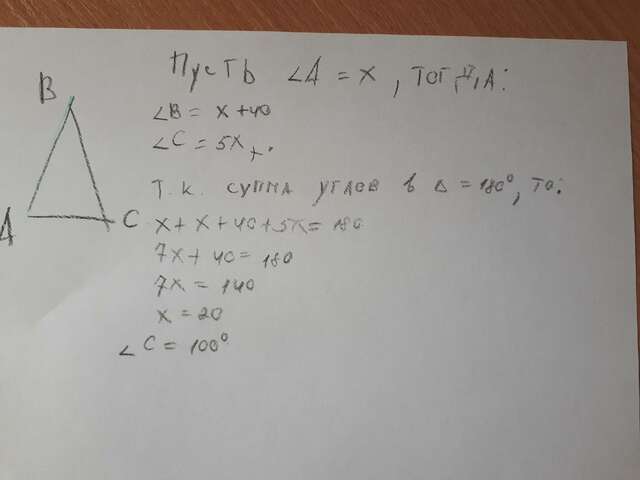 Пусть ∠A = x, тогда:
B
∠B = x+40
∠C = 5x
т.к. сумма углов в Δ = 180°, то:
A
C
x + x + 40 + 5x = 180
7x + 40 = 180
7x = 140
x = 20
∠C = 100°